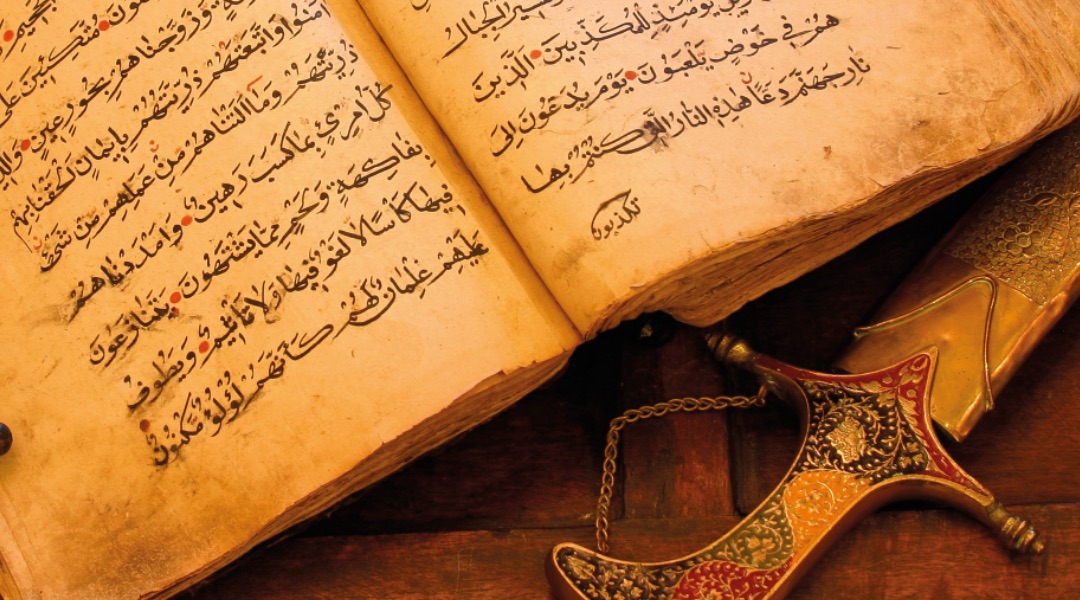 الجبال
يومئذ للمكذبين الذين
هم في خوض يلعبون يوم يدعون الى
نار جهنم دعا هذه النار التي كنتم بها
تكذبون
متكئين على
وزوجناهم بحور عين
آمنوا واتبعتهم ذريتهم بإيمان الحقنا بهم
ذريتهم وما ألتناهم من عملهم من شئ
كل امرئ بما كسب رهين وامددناهم
بفاكهة ولحم مما يشتهون يتنازعون
فيها كأسا لا لغو فيها ولا تأثيم ويطوف
عليهم غلمان لهم كأنهم لؤلؤ مكنون